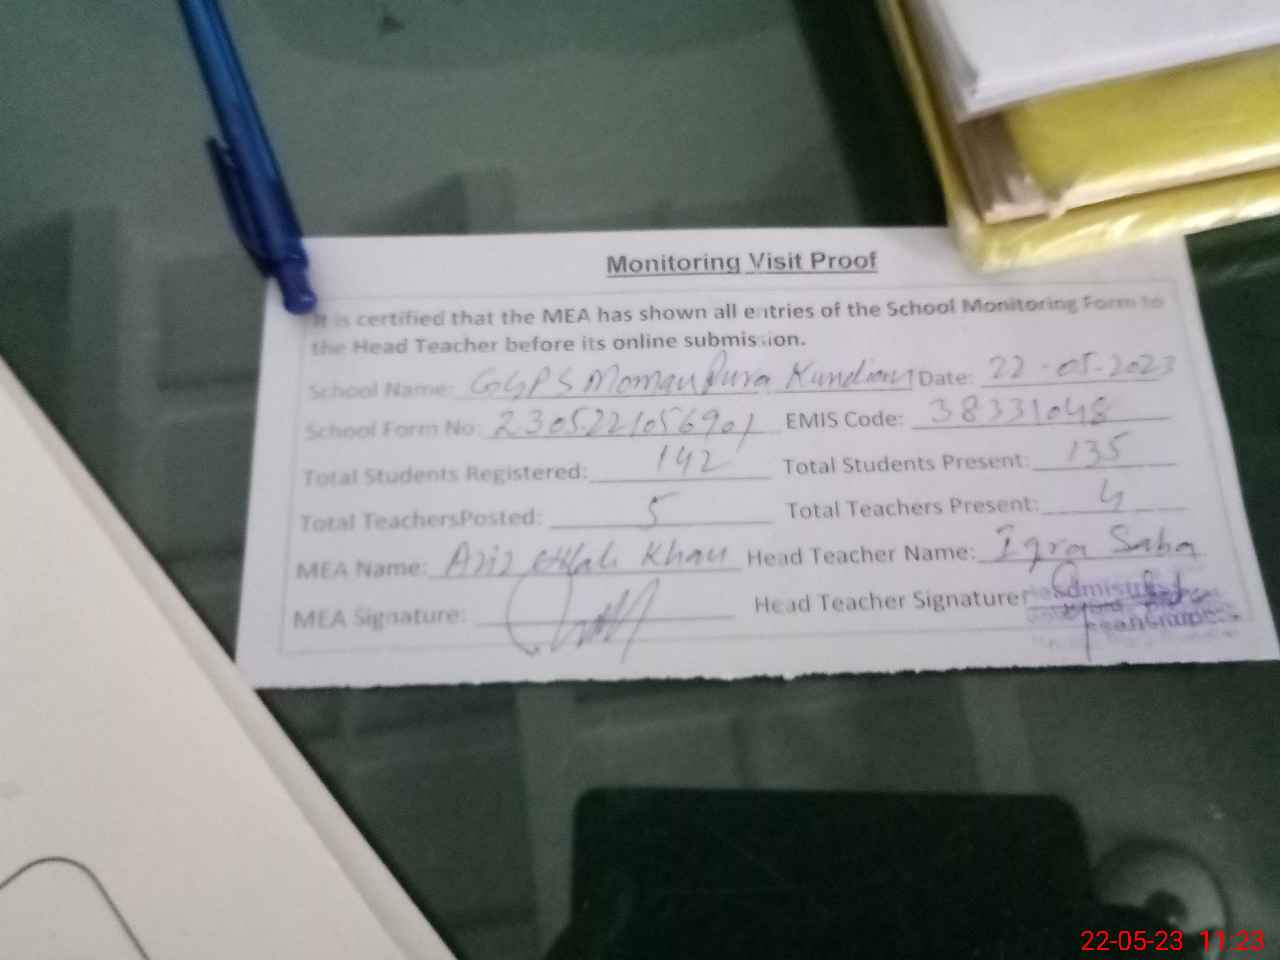 Monitoring Visit Proof
It is certified that the MEA has shown all entries of the School Monitoring Form to
the Head Teacher before its online submission.
School Name: GGPS Moman Pura Kundian Date: 22-05-2023
School Form No: 2305221056901 EMIS Code: 38331048
Total Students Registered: 142 Total Students Present: 135
Total TeachersPosted: 5 Total Teachers Present: 4
MEA Name: Aziz Khan Head Teacher Name: Iqra Saba
MEA Signature: Head Teacher Signature:
22-05-23 11:23